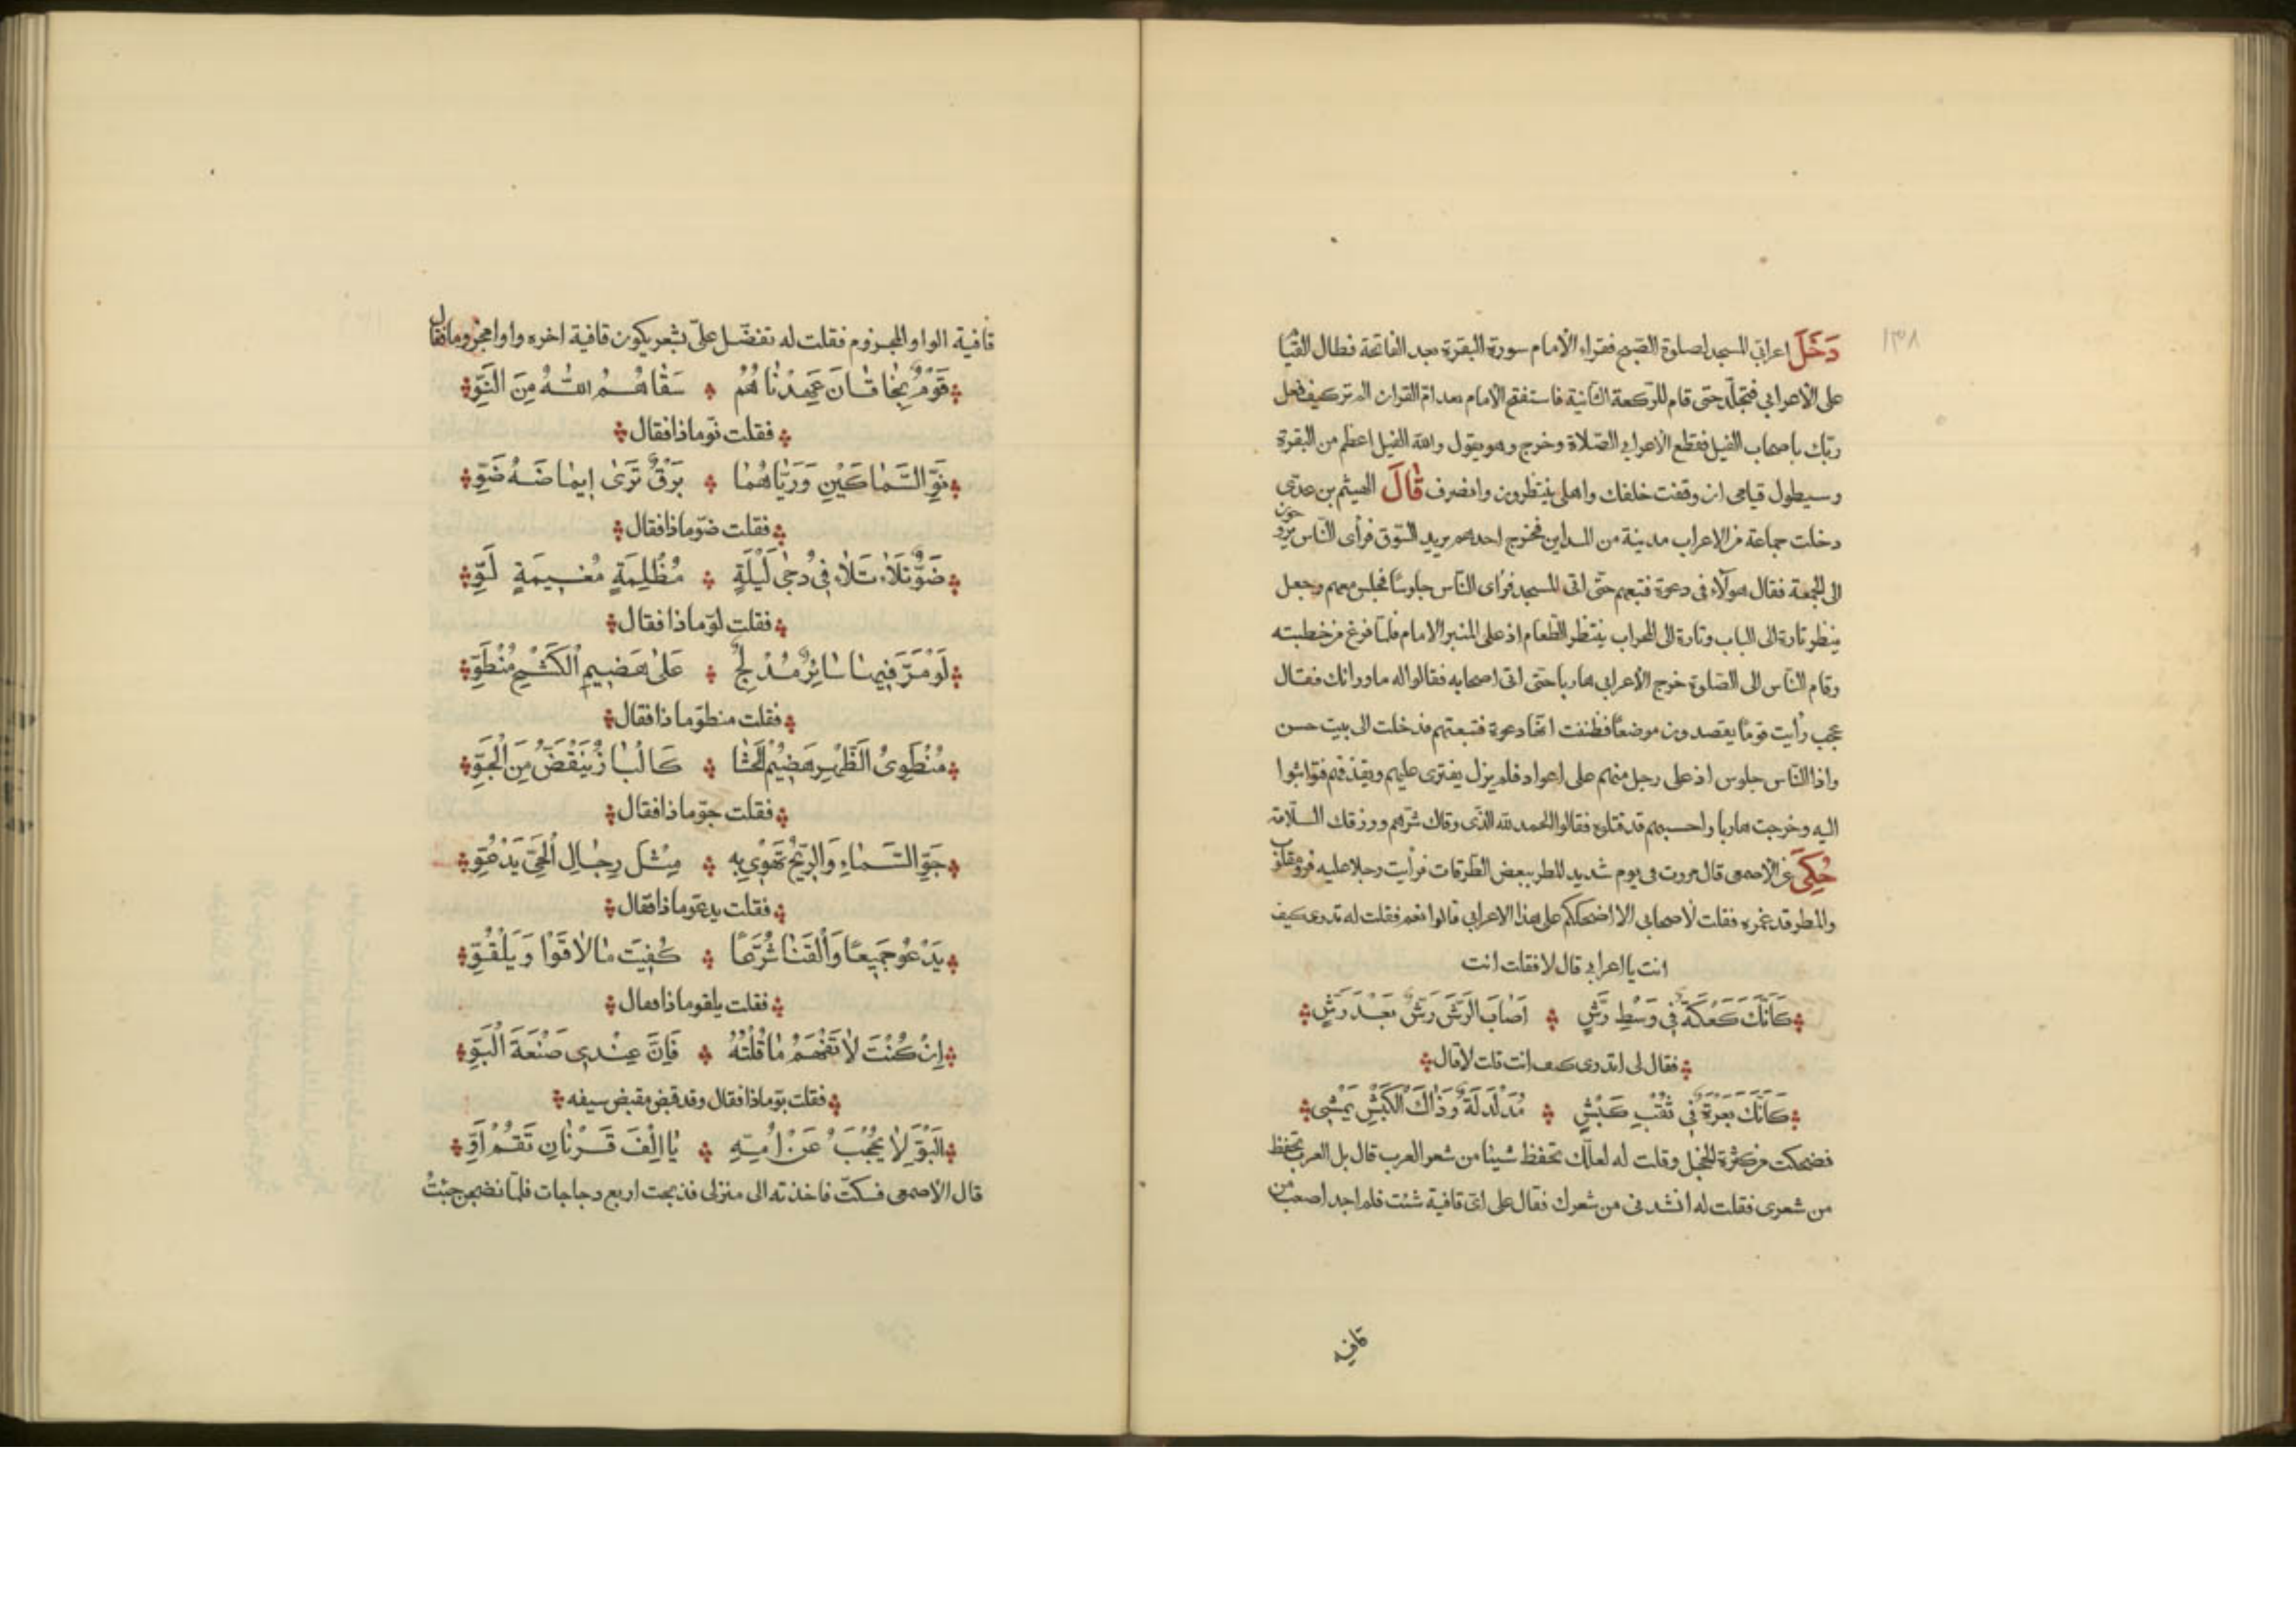 ١٣٨
دَخَلَ اعرابي المسجد لصلوة الصبح فقراء الأمام سورة البقرة بعد الفاتحة فطال القيام
على الأعرابي فتجلّد حتى قام للركعة الثانية فاستفتح الأمام بعد امّ القران الم تر كيف فعل
ربّك باصحاب الفيل فقطع الاعرابي الصّلاة وخرج وهو يقول والله الفيل اعظم من البقرة
وسيطول قيامى ان وقفت خلفك واهلى ينتظرون وانصرف قَالَ الهيثم بن عدىّ
دخلت جماعة من الاعراب مدينة من المداين فخرج احدهم يريد السّوق فرأى النّاس يروحون
الى الجمعة فقال هولآء فى دعوة فتبعهم حتّى اتى المسجد فرأى النّاس جلوسًا فجلس معهم وجعل
ينظر تارة الى الباب وتارة الى المحراب ينتظر الطّعام اذ على المنبر الامام فلمّا فرغ من خطبته
وقام النّاس الى الصّلوة خرج الأعرابى هاربا حتى اتى اصحابه فقالوا له ماوراك فقال
عجب رأيت قومًا يقصدون موضعًا فظننت انّها دعوة فتبعتهم فدخلت الى بيت حسن
واذا النّاس جلوس اذ على رجل منهم على اعواد فلم يزل يفترى عليهم ويقذفهم فتواثبوا
اليه وخرجت هاربا واحسبهم قد قتلوه فقالوا الحمد لله الذّى وقاك شرّهم ورزقك السّلامة
حُكِىَ عن الأصمعى قال مررت فى يوم شديد المطر ببعض الطّرقات فرأيت رجلا عليه فرو مقلوب
والمطر قد غمره فقلت لأصحابى الا اضحككم على هذا الاعرابى قالوا نعم فقلت له تدرى كيف
انت يا اعرابى قال لا فقلت انت
كَاَنَّكَ كَعْكَةٌ فِى وَسْطِ رَشٍّ اَصَابَ الرَّشَّ رَشٌّ بَعْدَ رَشٍّ
فقال لى اتدرى كيف انت قلت لا قال
كَاَنَّكَ بَعْرَةٌ فِى ثَقْبِ كَبْشٍ مُدَلْدَلَةٌ وَذَاكَ الْكَبْشُ يَمْشِى
فضحكت من كثرة الخجل وقلت له لعلّك تحفظ شيئا من شعر العرب قال بل العرب تحفظ
من شعرى فقلت له انشدنى من شعرك فقال على اىّ قافية شئت فلم اجد اصعب من
قافيه
قافية الواو المجزوم فقلت له تفضّل علىّ بشعر يكون قافية اخره واوا مجزوما فقال
قَوْمٌ بِخَاقَانَ عَهِدْنَاهُمُ سَقَاهُمُ اللّٰهُ مِنَ النَّوِّ
فقلت نوّ ماذا فقال
نَوِّ السَّمَاكَيْنِ وَرَيَّاهُمَا بَرْقٌ تَرَىٰ اِيمَاضَهُ ضَوِّ
فقلت ضوّ ماذا فقال
ضَوٌّ تَلَأْلَأ فِى دُجَىٰ لَيْلَةٍ مُظْلِمَةٍ مُغِيمَةٍ لَوِّ
فقلت لوّ ماذا فقال
لَوْ مَرَّ فِيهَا سَائِرٌ مُدْلِجٌ عَلَىٰ هَضِيمِ الْكَشْحِ مُنْطَوِّ
فقلت منطوّ ماذا فقال
مُنْطَوِىُ الظَّهْرِ هَضِيْمُ الْحَشَا كَالْبَازُ يَنْقَضُّ مِنَ الْجَوِّ
فقلت جوّ ماذا فقال
جَوِّ السَّمَاءِ وَالرِّيحُ تَهْوِى بِهِ مِثْلَ رِجَالِ الْحَىِّ يَدْعُوِّ
فقلت يدعو ماذا فقال
يَدْعُو جَمِيعًا وَالْقَنَا شُرَّعًا كُفِيَتَ مَا لَاقَوْا وَيَلْقُوِّ
فقلت يلقو ماذا فقال
اِنْ كُنْتَ لَا تَفْهَمُ مَا قُلْتُهُ فَاِنَّ عِنْدِى صَنْعَةَ الْبَوِّ
فقلت بوّ ماذا فقال وقد قبض مقبض سيفه
الْبَوُّ لَا يُحْجَبُ عَنْ اُمِّهِ يَا اِلْفَ قَرْنَانِ تَقُمْ اَوِّ
قال الأصمعى فسكتّ فاخذته الى منزلى فذبحت اربع دجاجات فلمّا نضجن جئتُ